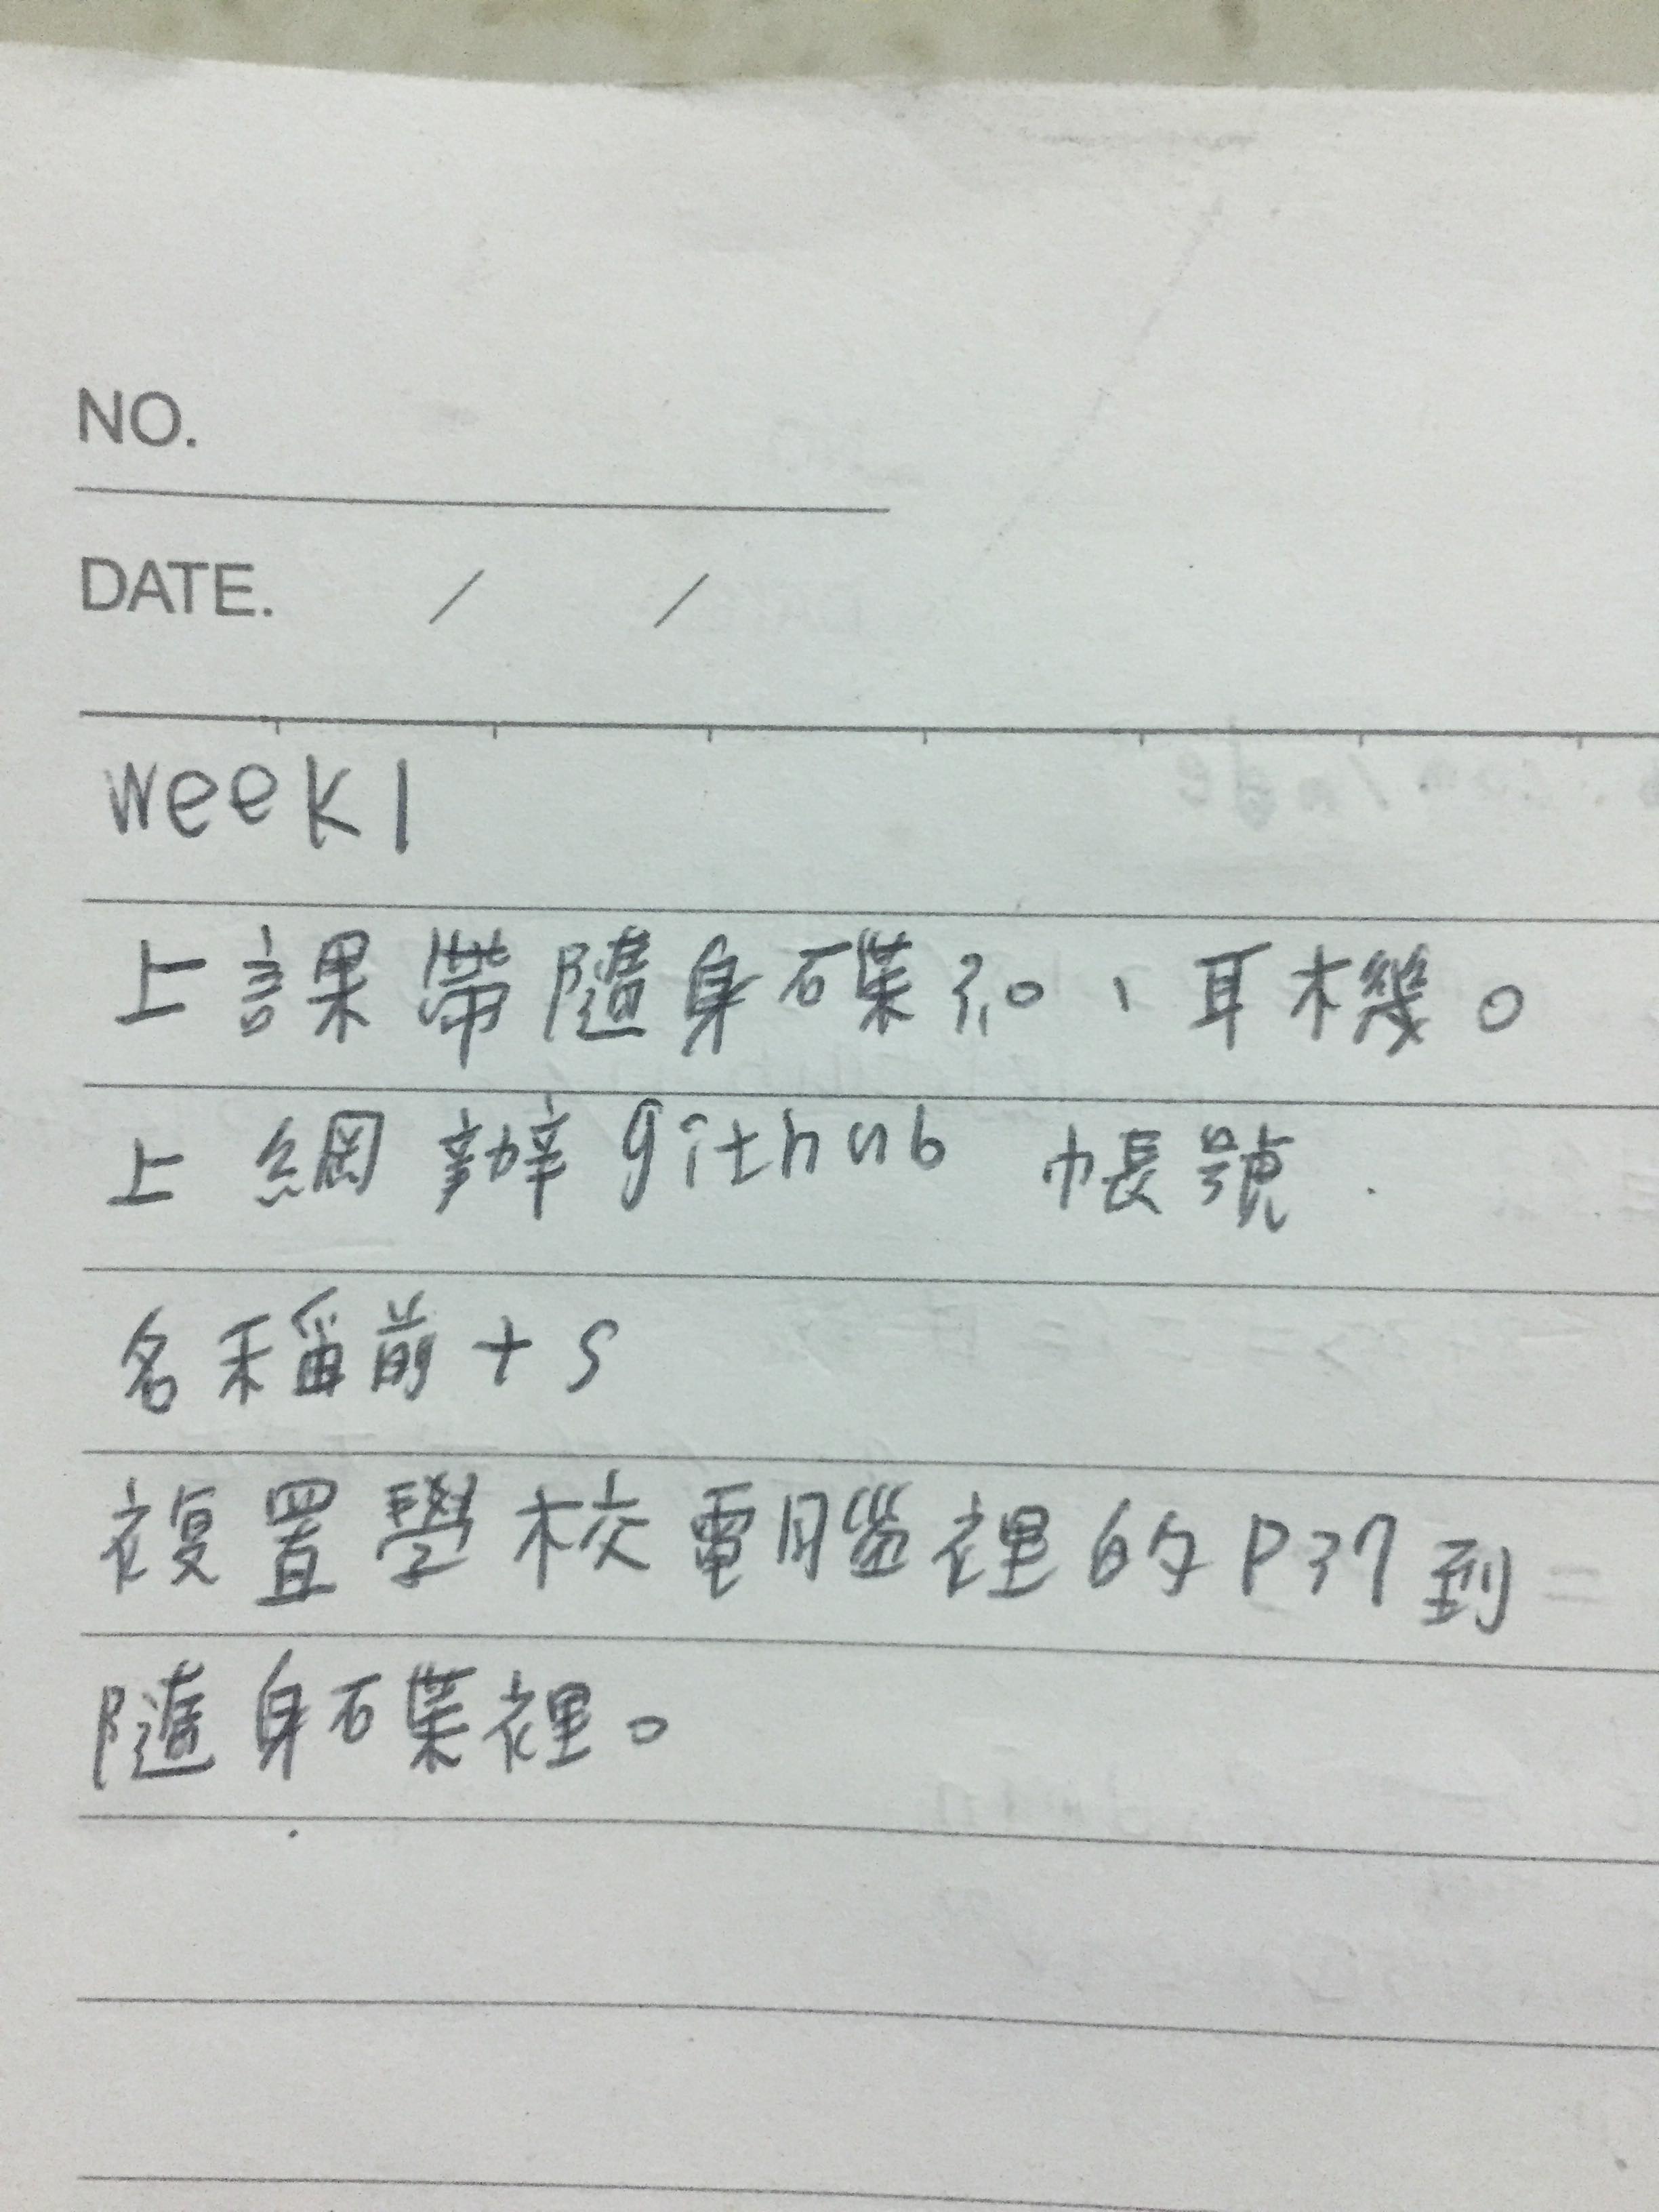 NO.
DATE. / /
week1
上課帶隨身碟3.0、耳機。
上網辦github 帳號.
名稱前+s
複置學校電腦裡的P37到
隨身碟裡。